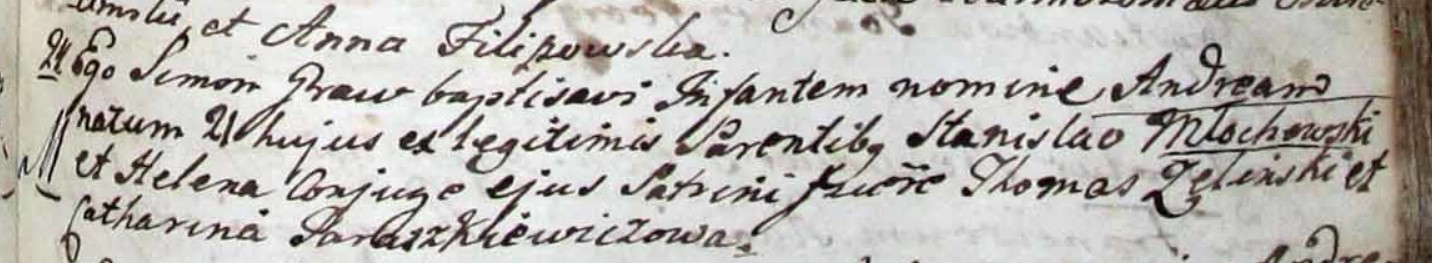 et Anna Filipowska.
24 Ego Simon Graw baptisavi Infantem nomine Andream
natum 21 hujus ex legitimis Parentibg Stanislao Młochowski
et Helena Conjuge ejus Patrini fuere Thomas Zeliński et
Catharina Paraszkiewiczowa.